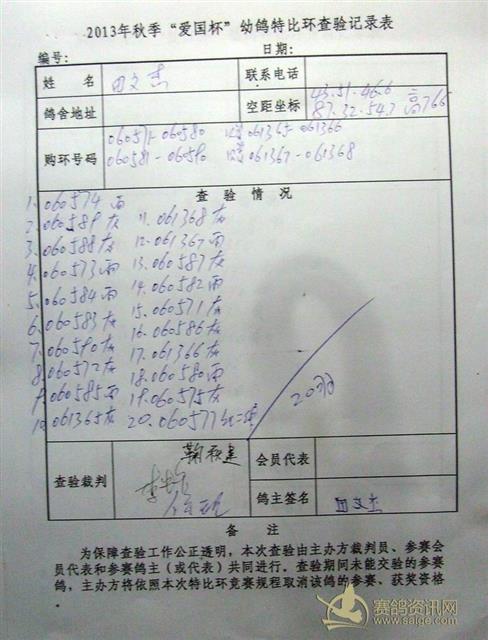 2013年秋季“爱国杯”幼鸽特比环查验记录表
编号： 日期：
姓名 田文杰 联系电话
鸽舍地址 空距坐标 43.51-46.6
87.32-54.7 高766
购环号码 060571-060580 061365-061366
060581-060590 061367-061368
查验情况
1.060574 雨
2.060589灰 11.061368灰
3.060588灰 12.061367雨
4.060573雨 13.060587灰
5.060584雨 14.060582雨
6.060583灰 15.060571灰
7.060590灰 16.060586灰
8.060572灰 17.061366灰
9.060585雨 18.060580雨
10.061365灰 19.060575灰
20.060577红
20羽
查验裁判 会员代表
鸽主签名 田文杰
备注
为保障查验工作公正透明，本次查验由主办方裁判员、参赛会
员代表和参赛鸽主（或代表）共同进行。查验期间未能交验的参赛
鸽，主办方将依照本次特比环竞赛规程取消该鸽的参赛、获奖资格
赛鸽资讯网
www.saige.com